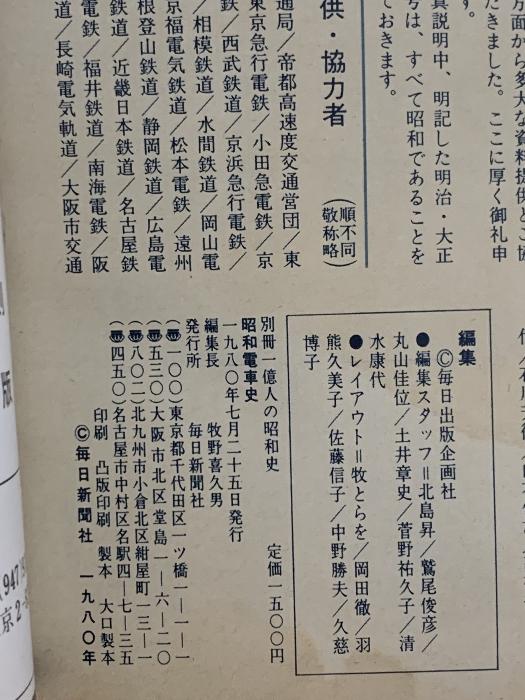 方面から多大な資料提供、ご協
だきました。ここに厚く御礼申
す。
真説明中、明記した明治・大正
号は、すべて昭和であることを
ておきます。
供・協力者
(順不同
敬称略)
通局/帝都高速度交通営団/東
東京急行電鉄/小田急電鉄/京
鉄/西武鉄道/京浜急行電鉄/
/相模鉄道/水間鉄道/岡山電
京福電気鉄道/松本電鉄/遠州
根登山鉄道/静岡鉄道/広島電
鉄道/近畿日本鉄道/名古屋鉄
電鉄/福井鉄道/南海電鉄/阪
道/長崎電気軌道/大阪市交通
編集
©毎日出版企画社
●編集スタッフ=北島昇/鷲尾俊彦/
丸山佳位/土井章史/菅野祐久子/清
水康代
●レイアウト=牧とらを/岡田徹/羽
熊久美子/佐藤信子/中野勝夫/久慈
博子
別冊一億人の昭和史
昭和電車史 定価一五〇〇円
一九八〇年七月二十五日発行
編集長 牧野喜久男
発行所 毎日新聞社
(〒一〇〇)東京都千代田区一ツ橋一―一―一
(〒五三〇)大阪市北区堂島一―六―二〇
(〒八〇二)北九州市小倉北区紺屋町一三―一
(〒四五〇)名古屋市中村区名駅四―七―三五
印刷 凸版印刷 製本 大口製本
©毎日新聞社 一九八〇年
版